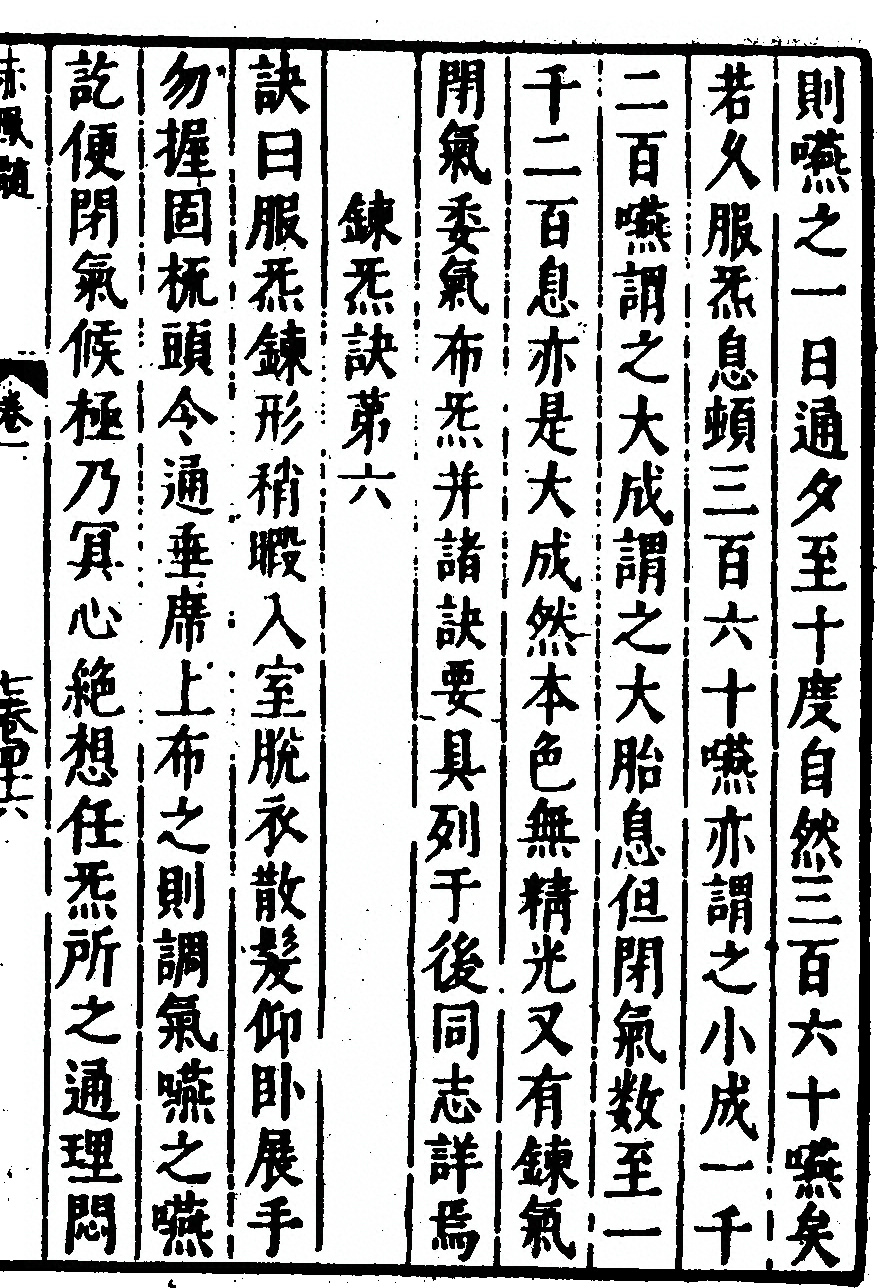 則嚥之一日通夕至十度自然三百六十嚥矣
若久服炁息頓三百六十嚥亦謂之小成一千
二百嚥謂之大成謂之大胎息但閉氣数至一
千二百息亦是大成然本色無精光又有鍊氣
閉氣委氣布炁并諸訣要具列于後同志詳焉
鍊炁訣第六
訣曰服炁鍊形稍暇入室脫衣散髮仰卧展手
勿握固梳頭令通垂席上布之則調氣嚥之嚥
訖便閉氣候極乃冥心絶想任炁所之通理悶
赤鳳髓
卷一